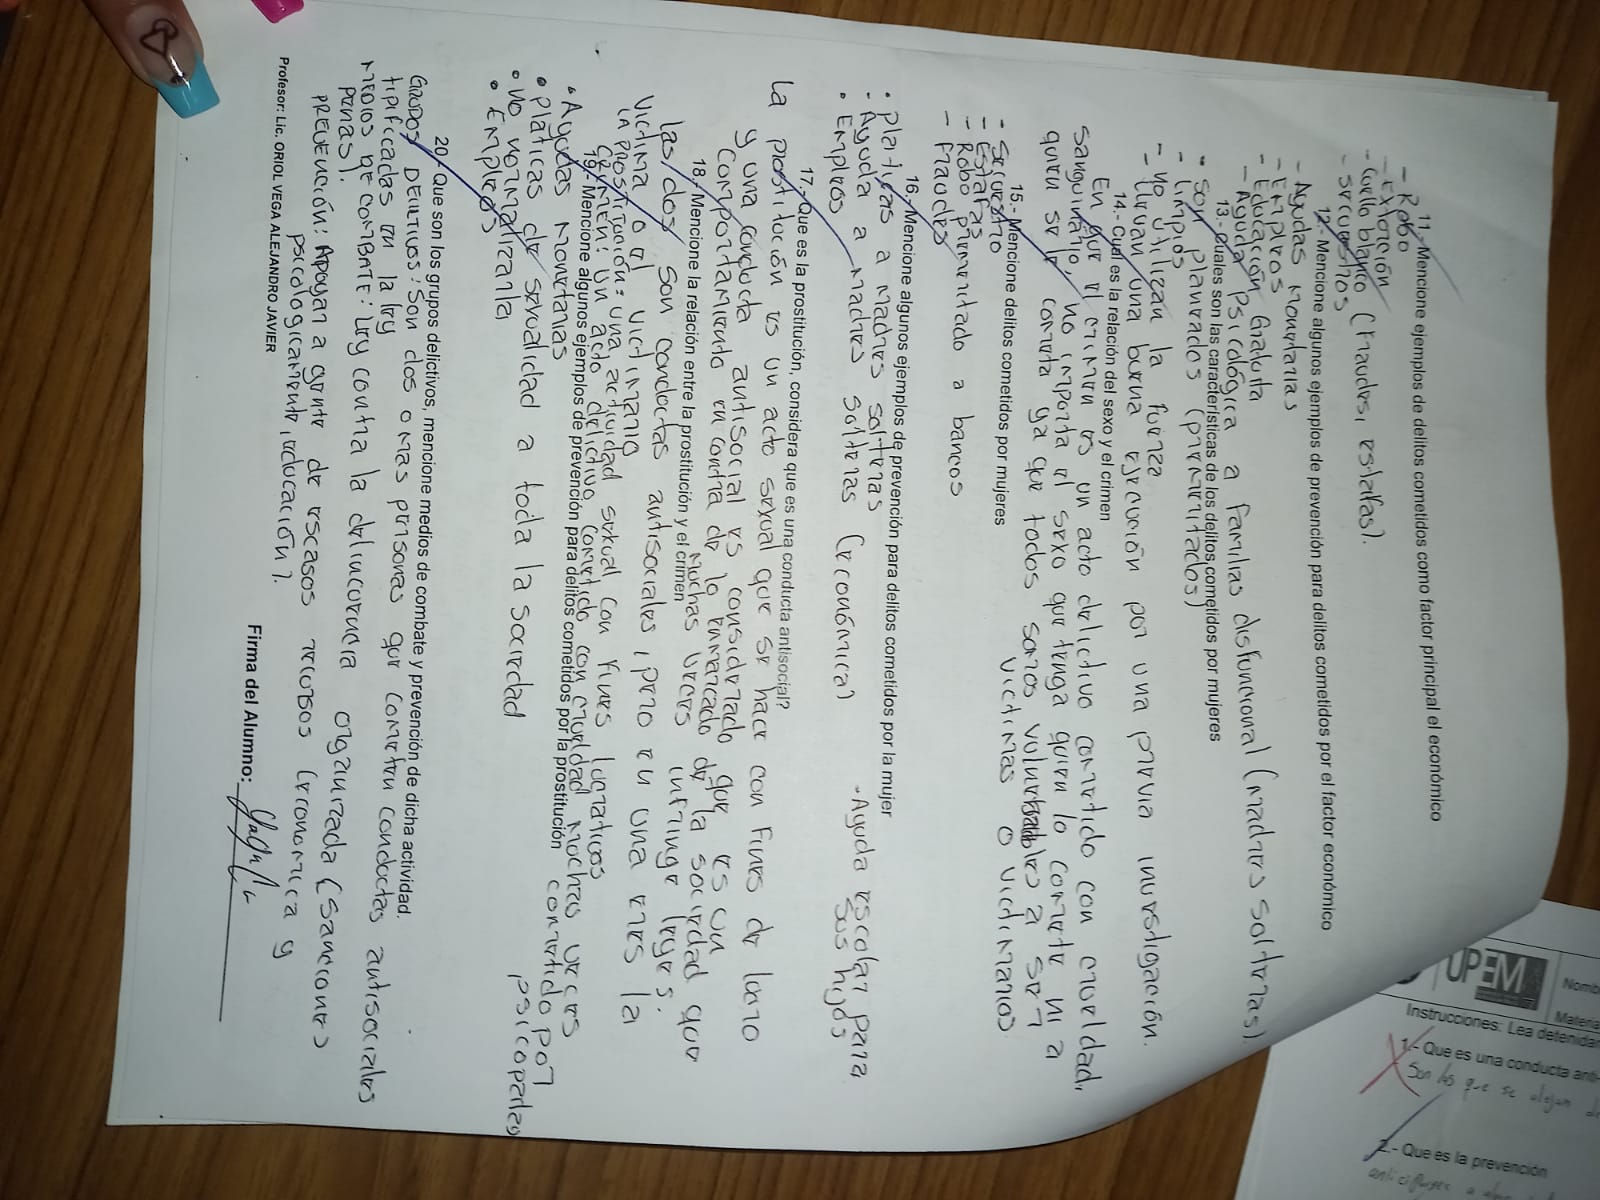 11.- Mencione ejemplos de delitos cometidos como factor principal el económico
- Robo
- Extorción
- Cuello blanco (fraudes, estafas).
- secuestros
12.- Mencione algunos ejemplos de prevención para delitos cometidos por el factor económico
- Ayudas monetarias
- Empleos
- Educación Gratuita
- Ayuda Psicológica a familias disfuncional (madres solteras)
13.- Cuales son las características de los delitos cometidos por mujeres
• Son planeados (premeritados)
- Limpios
- No utilizan la fuerza
- Llevan una buena ejecución por una previa investigación.
14.- Cual es la relación del sexo y el crimen
En que el crimen es un acto delictivo cometido con crueldad,
sanguinario, no importa el sexo que tenga quien lo comete ni a
quien se le cometa ya que todos somos vulnerables a ser
victimas o victimarios
15.- Mencione delitos cometidos por mujeres
- Secuestro
- Estafas
- Robo premeritado a bancos
- fraudes
16.- Mencione algunos ejemplos de prevención para delitos cometidos por la mujer
• platicas a madres solteras
- Ayuda a madres solteras (económica)
• Empleos
- Ayuda escolar para
sus hijos
17.- Que es la prostitución, considera que es una conducta antisocial?
La prostitución es un acto sexual que se hace con fines de lucro
y una conducta antisocial es considerado que es un
comportamiento en contra de lo enmarcado de la sociedad que
muchas veces infringe leyes.
18.- Mencione la relación entre la prostitución y el crimen
Las dos son conductas antisociales, pero en una eres la
victima o el victimario
LA PROSTITUCIÓN: una actividad sexual con fines lucrativos
CRIMEN: Un acto delictivo cometido con crueldad muchas veces
cometido por
psicopatas
19.- Mencione algunos ejemplos de prevención para delitos cometidos por la prostitución
• Ayudas monetarias
• platicas de sexualidad a toda la sociedad
• No normalizarla
• Empleos
20.- Que son los grupos delictivos, mencione medios de combate y prevención de dicha actividad.
GRUPOS DELICTIVOS: Son dos o mas personas que cometen conductas antisociales
tipificadas en la ley
MEDIOS DE COMBATE: Ley contra la delincuencia organizada (sanciones
penas).
PREVENCIÓN: Apoyar a gente de escasos recursos (economica y
psicologicamente, educación).
Profesor: Lic. ORIOL VEGA ALEJANDRO JAVIER
Firma del Alumno:
UPEM
Instrucciones: Lea
1.- Que es una conducta
Son las que se alejan
2.- Que es la prevención